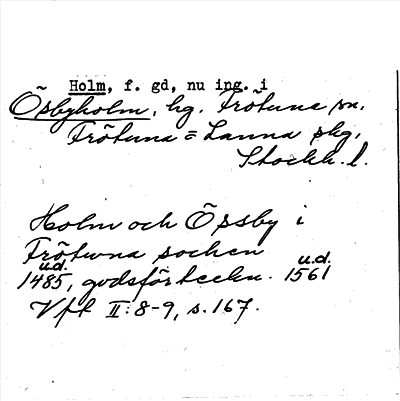 Holm, f. gd, nu ing. i
Ösbyholm, hg. Frötuna sn,
Frötuna = Länna skg,
Stockh. l.
Holm och Ösby i
Frötuna socken
u.d. u.d.
1485, godsförteckn. 1561
Vfk II: 8-9, s. 167.